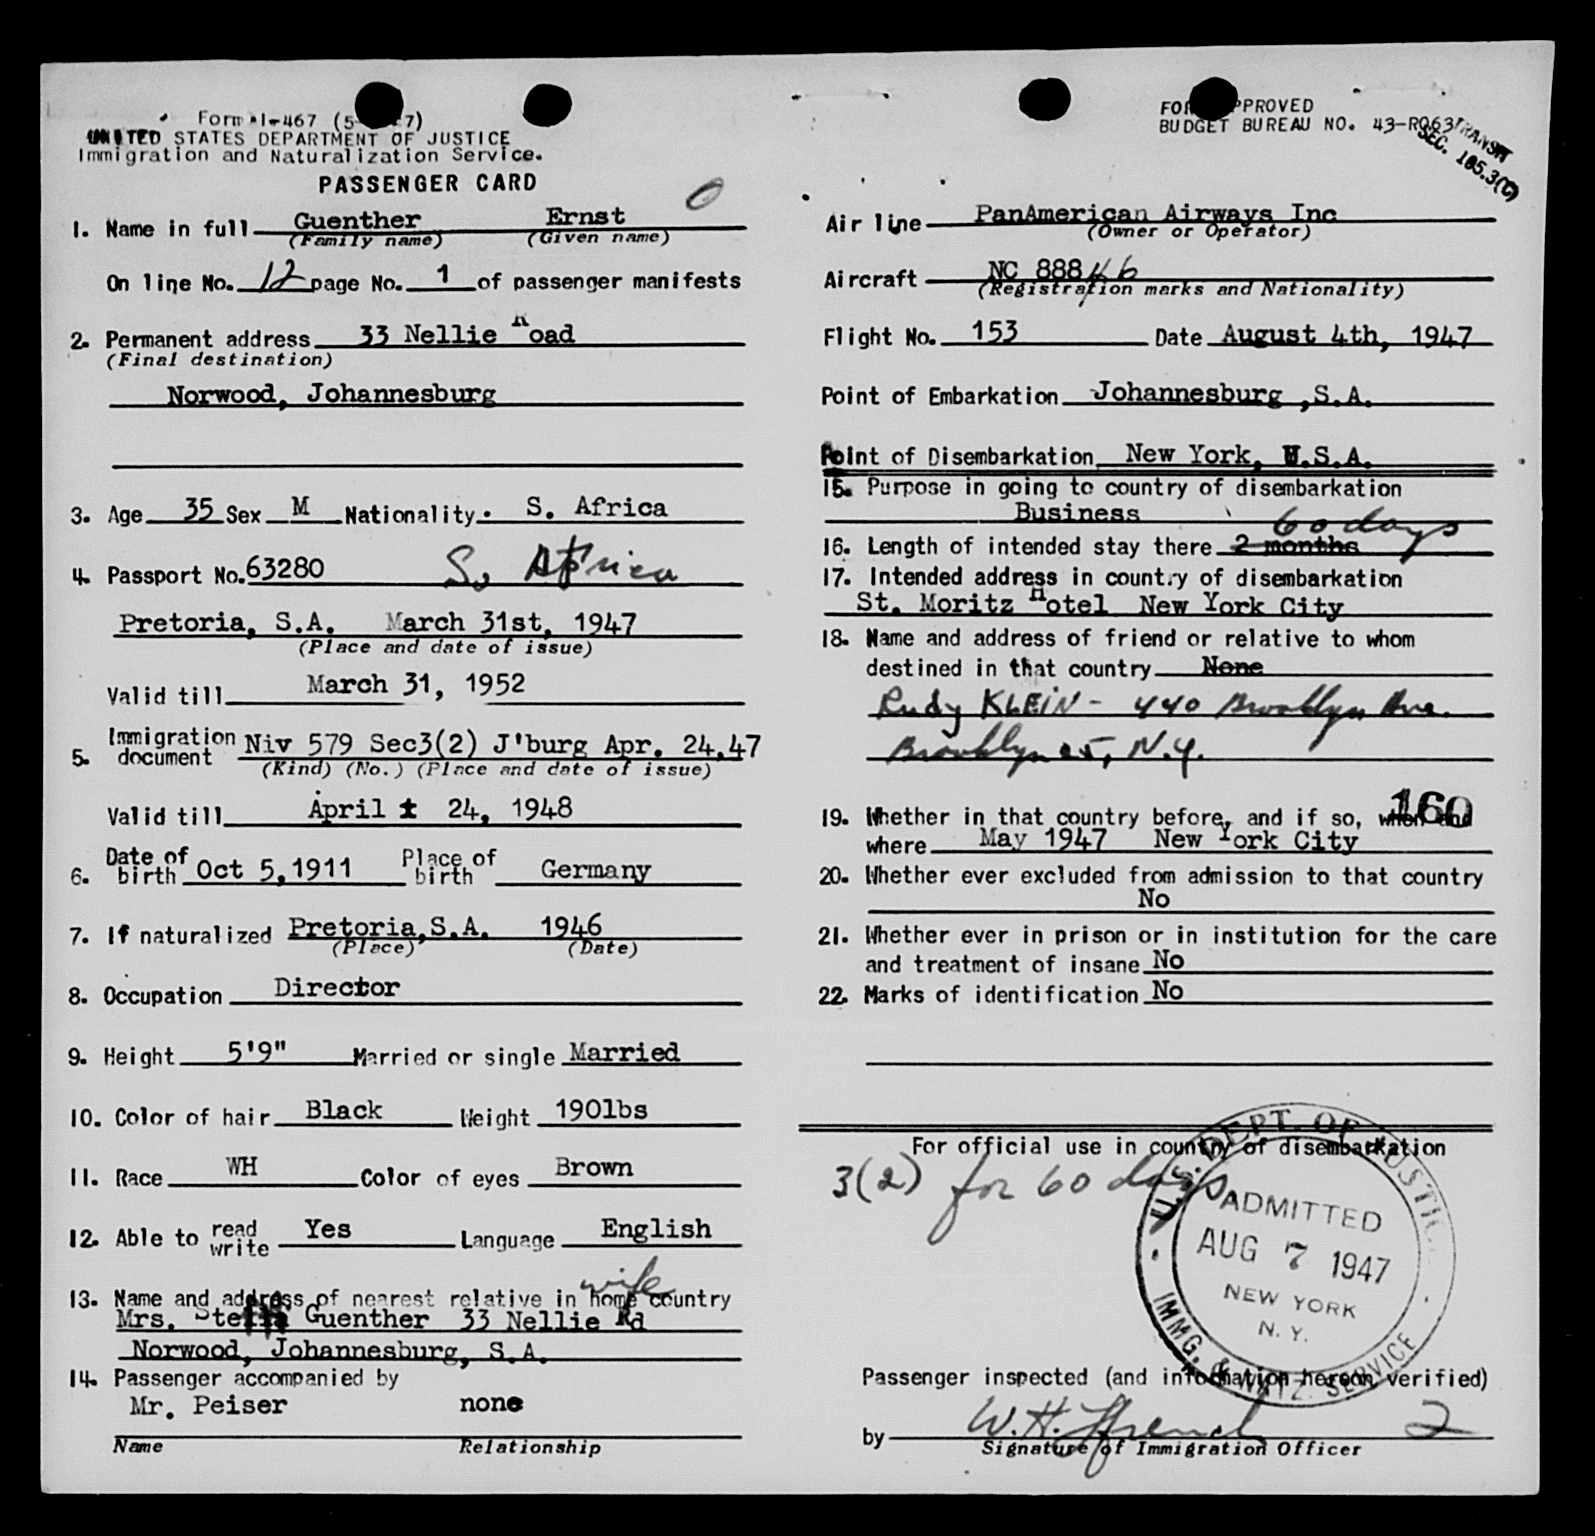 Form I-467 (5- 7)
UNITED STATES DEPARTMENT OF JUSTICE
Immigration and Naturalization Service.
PASSENGER CARD
1. Name in full Guenther Ernst
(Family name) (Given name)
On line No. 12 page No. 1 of passenger manifests
2. Permanent address 33 Nellie Road
(Final destination)
Norwood, Johannesburg
3. Age 35 Sex M Nationality S. Africa
4. Passport No. 63280 S. Africa
Pretoria, S.A. March 31st, 1947
(Place and date of issue)
Valid till March 31, 1952
5. Immigration document Niv 579 Sec3(2) J'burg Apr. 24,47
(Kind) (No.) (Place and date of issue)
Valid till April 24, 1948
6. Date of birth Oct 5,1911 Place of birth Germany
7. If naturalized Pretoria,S.A. 1946
(Place) (Date)
8. Occupation Director
9. Height 5'9" Married or single Married
10. Color of hair Black Weight 190lbs
11. Race WH Color of eyes Brown
12. Able to read write Yes Language English
wife
13. Name and address of nearest relative in home country
Mrs. Guenther 33 Nellie Rd
Norwood, Johannesburg, S.A.
14. Passenger accompanied by
Mr. Peiser none
Name Relationship
FORM APPROVED
BUDGET BUREAU NO. 43-R063
TRANSIT
SEC. 165.3(C)
Air line PanAmerican Airways Inc
(Owner or Operator)
Aircraft NC 88846
(Registration marks and Nationality)
Flight No. 153 Date August 4th, 1947
Point of Embarkation Johannesburg ,S.A.
Point of Disembarkation New York, U.S.A.
15. Purpose in going to country of disembarkation
Business
60 days
16. Length of intended stay there 2 months
17. Intended address in country of disembarkation
St. Moritz Hotel New York City
18. Name and address of friend or relative to whom
destined in that country None
Rudy KLEIN - 440 Brooklyn Ave.
Brooklyn 25, N.Y.
160
19. Whether in that country before, and if so, when and
where May 1947 New York City
20. Whether ever excluded from admission to that country
No
21. Whether ever in prison or in institution for the care
and treatment of insane No
22. Marks of identification No
For official use in country of disembarkation
3(2) for 60 days
U.S. DEPT. OF JUSTICE
ADMITTED
AUG 7 1947
NEW YORK
N. Y.
IMMG. & NATZ. SERVICE
Passenger inspected (and information hereon verified)
by W.H. Ffrench 2
Signature of Immigration Officer